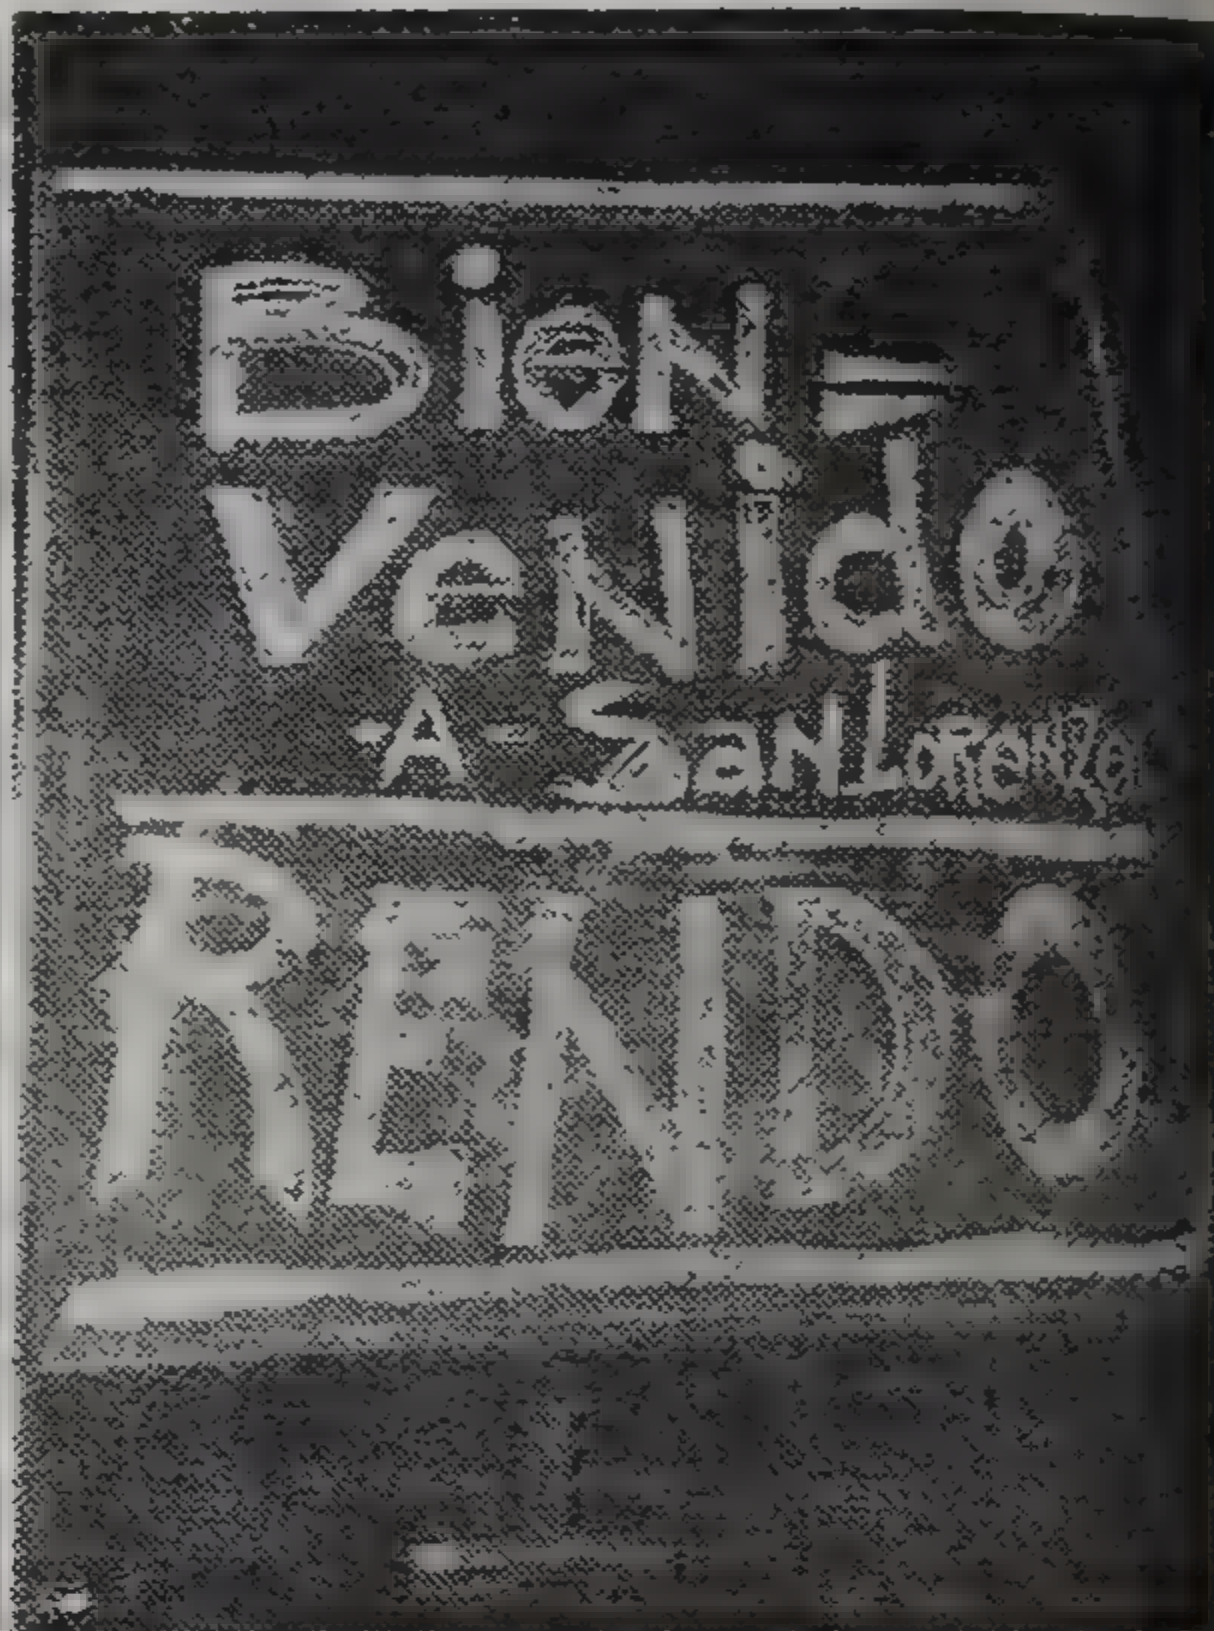 BieN=
VeNido
-A- SaN Lorenzo
RENDO